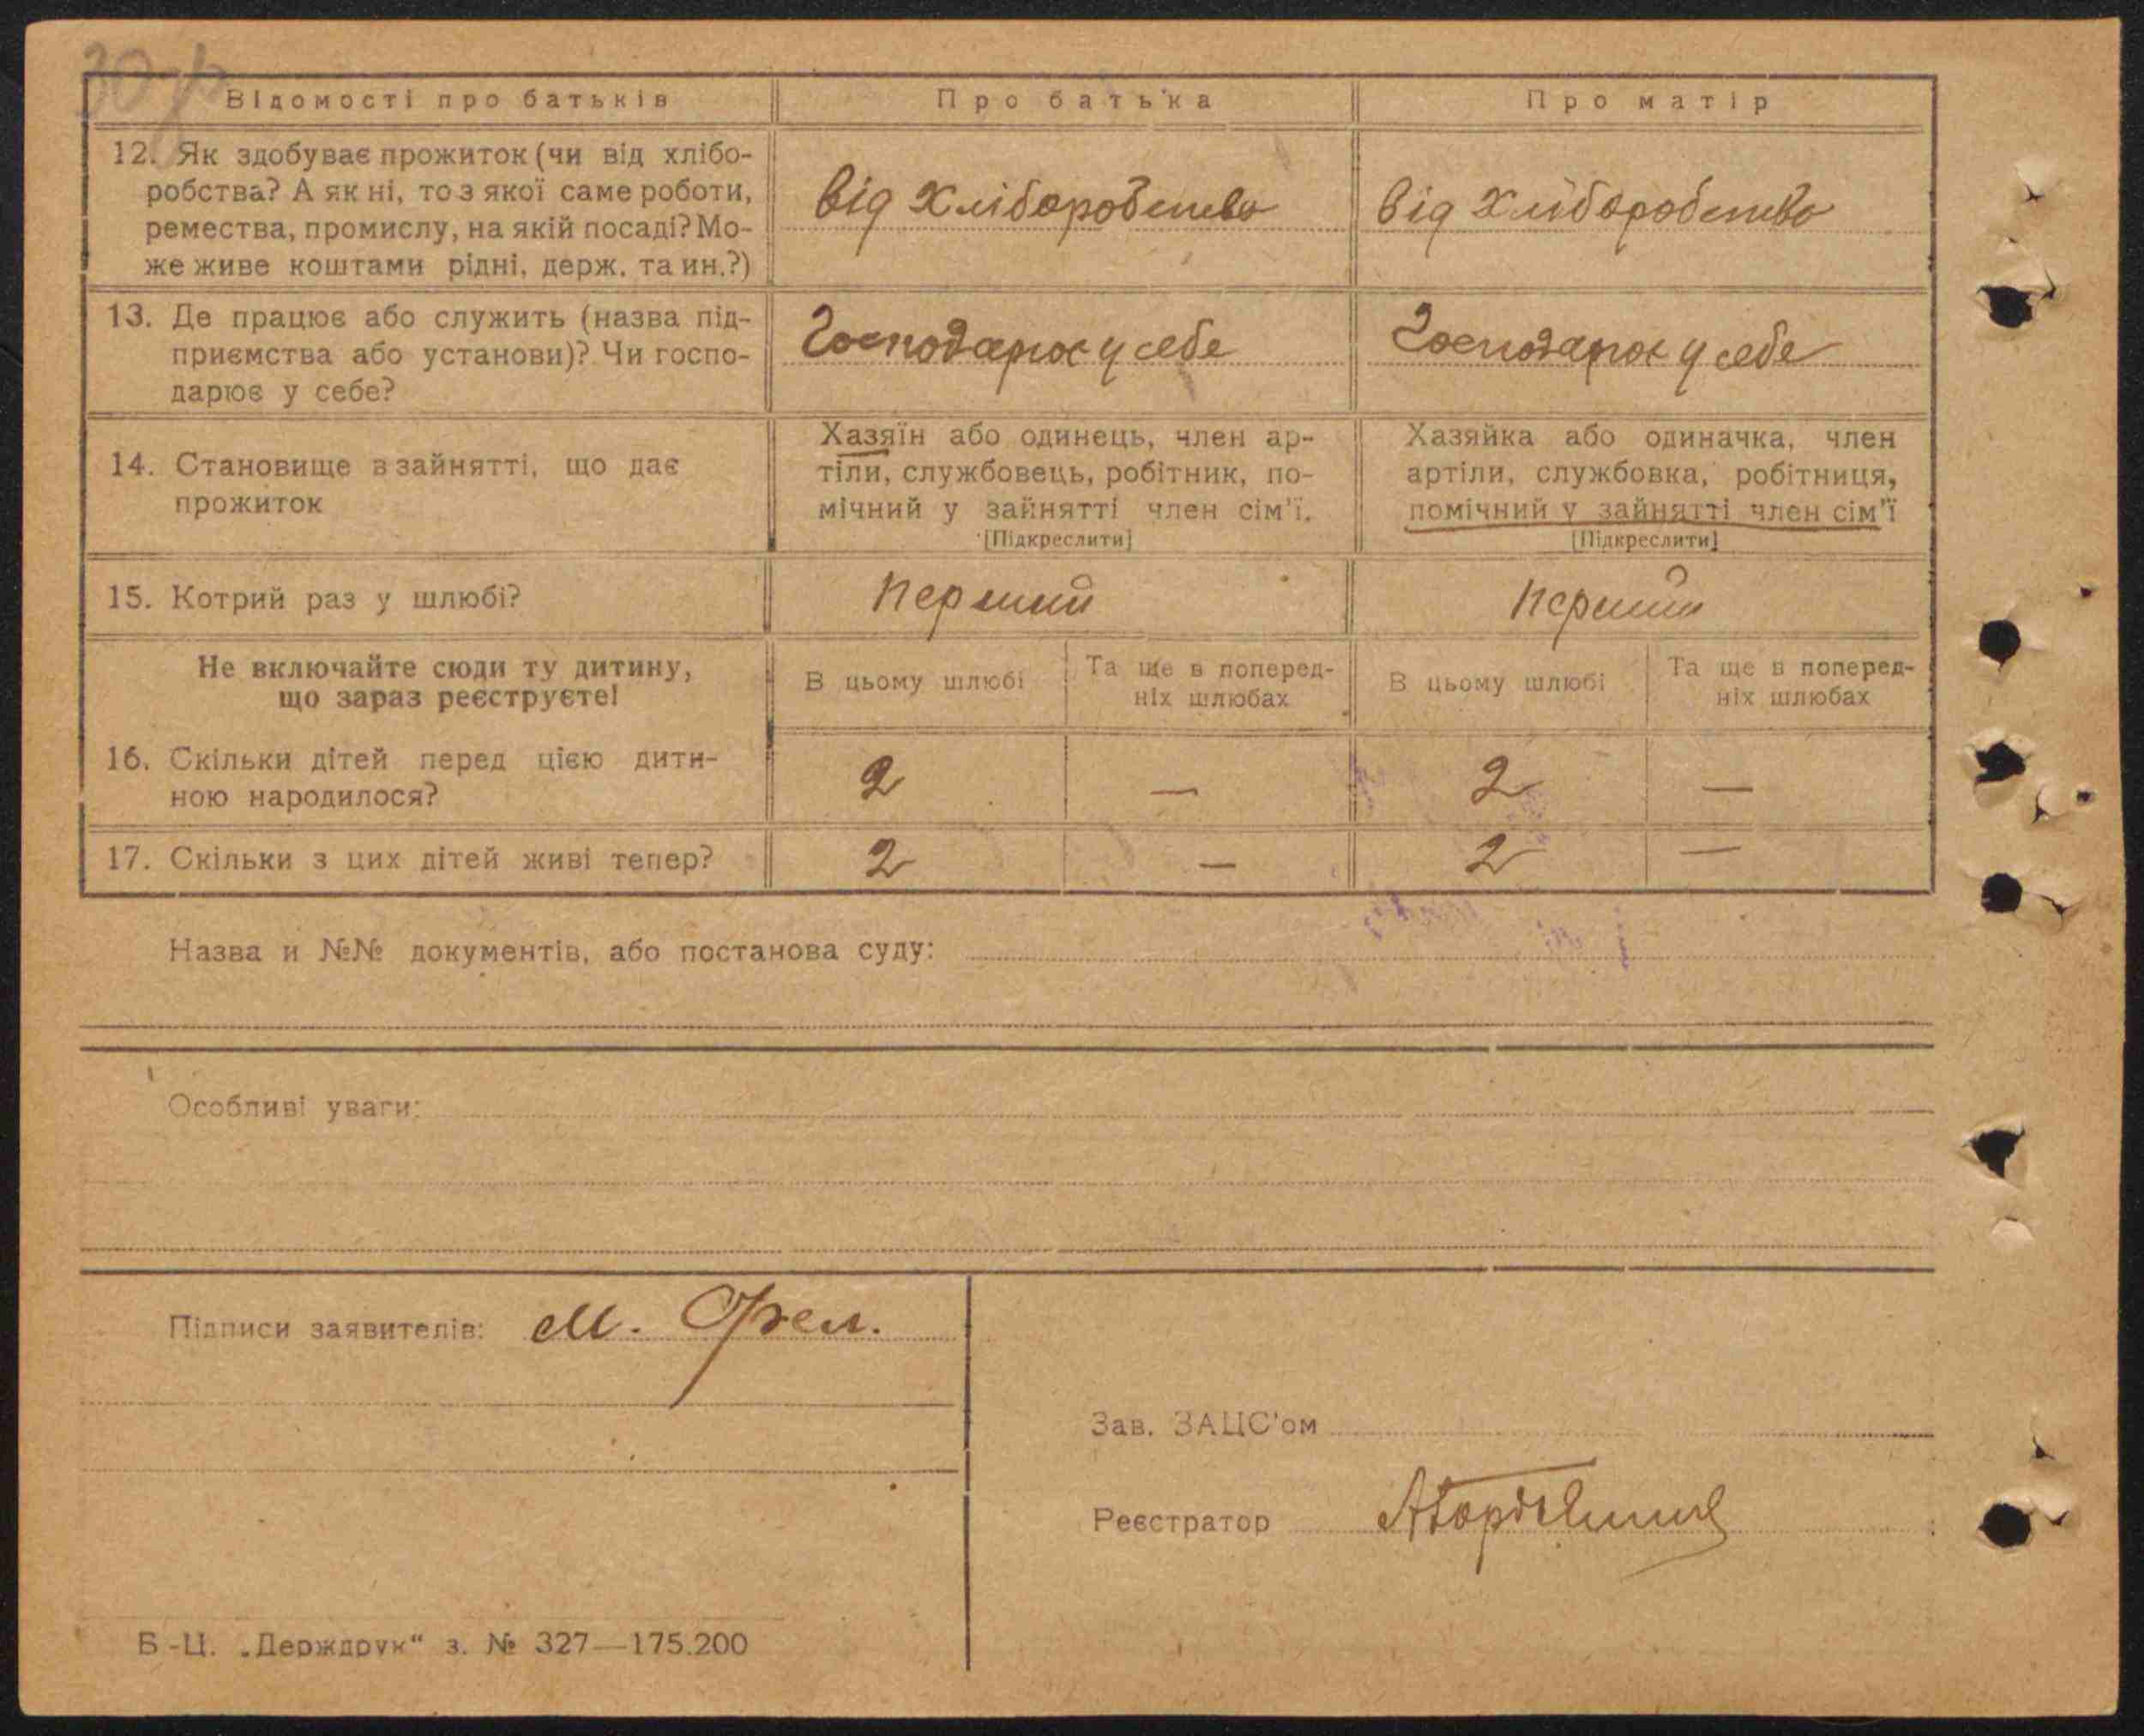 Відомості про батьків Про батька Про матір
12. Як здобуває прожиток (чи від хлібо- від хліборобства від хліборобства
робства? А як ні, то з якої саме роботи,
ремества, промислу, на якій посаді? Мо-
же живе коштами рідні, держ. та ин.?)
13. Де працює або служить (назва під- Господарює у себе Господарює у себе
приємства або установи)? Чи госпо-
дарює у себе?
14. Становище в зайнятті, що дає
прожиток
Хазяїн або одинець, член ар-
тіли, службовець, робітник, по-
мічний у зайнятті член сім'ї.
[Підкреслити]
Хазяйка або одиначка, член
артіли, службовка, робітниця,
помічний у зайнятті член сім'ї
[Підкреслити]
15. Котрий раз у шлюбі? перший перший
Не включайте сюди ту дитину,
що зараз реєструєте!
В цьому шлюбі
Та ще в поперед-
ніх шлюбах
В цьому шлюбі
Та ще в поперед-
ніх шлюбах
16. Скільки дітей перед цією дити-
ною народилося? 2 — 2 —
17. Скільки з цих дітей живі тепер? 2 — 2 —
Назва и №№ документів, або постанова суду:
Особливі уваги:
Підписи заявителів: М.
Зав. ЗАЦС'ом
Реєстратор
Б-Ц. „Держдрук“ з. № 327—175.200